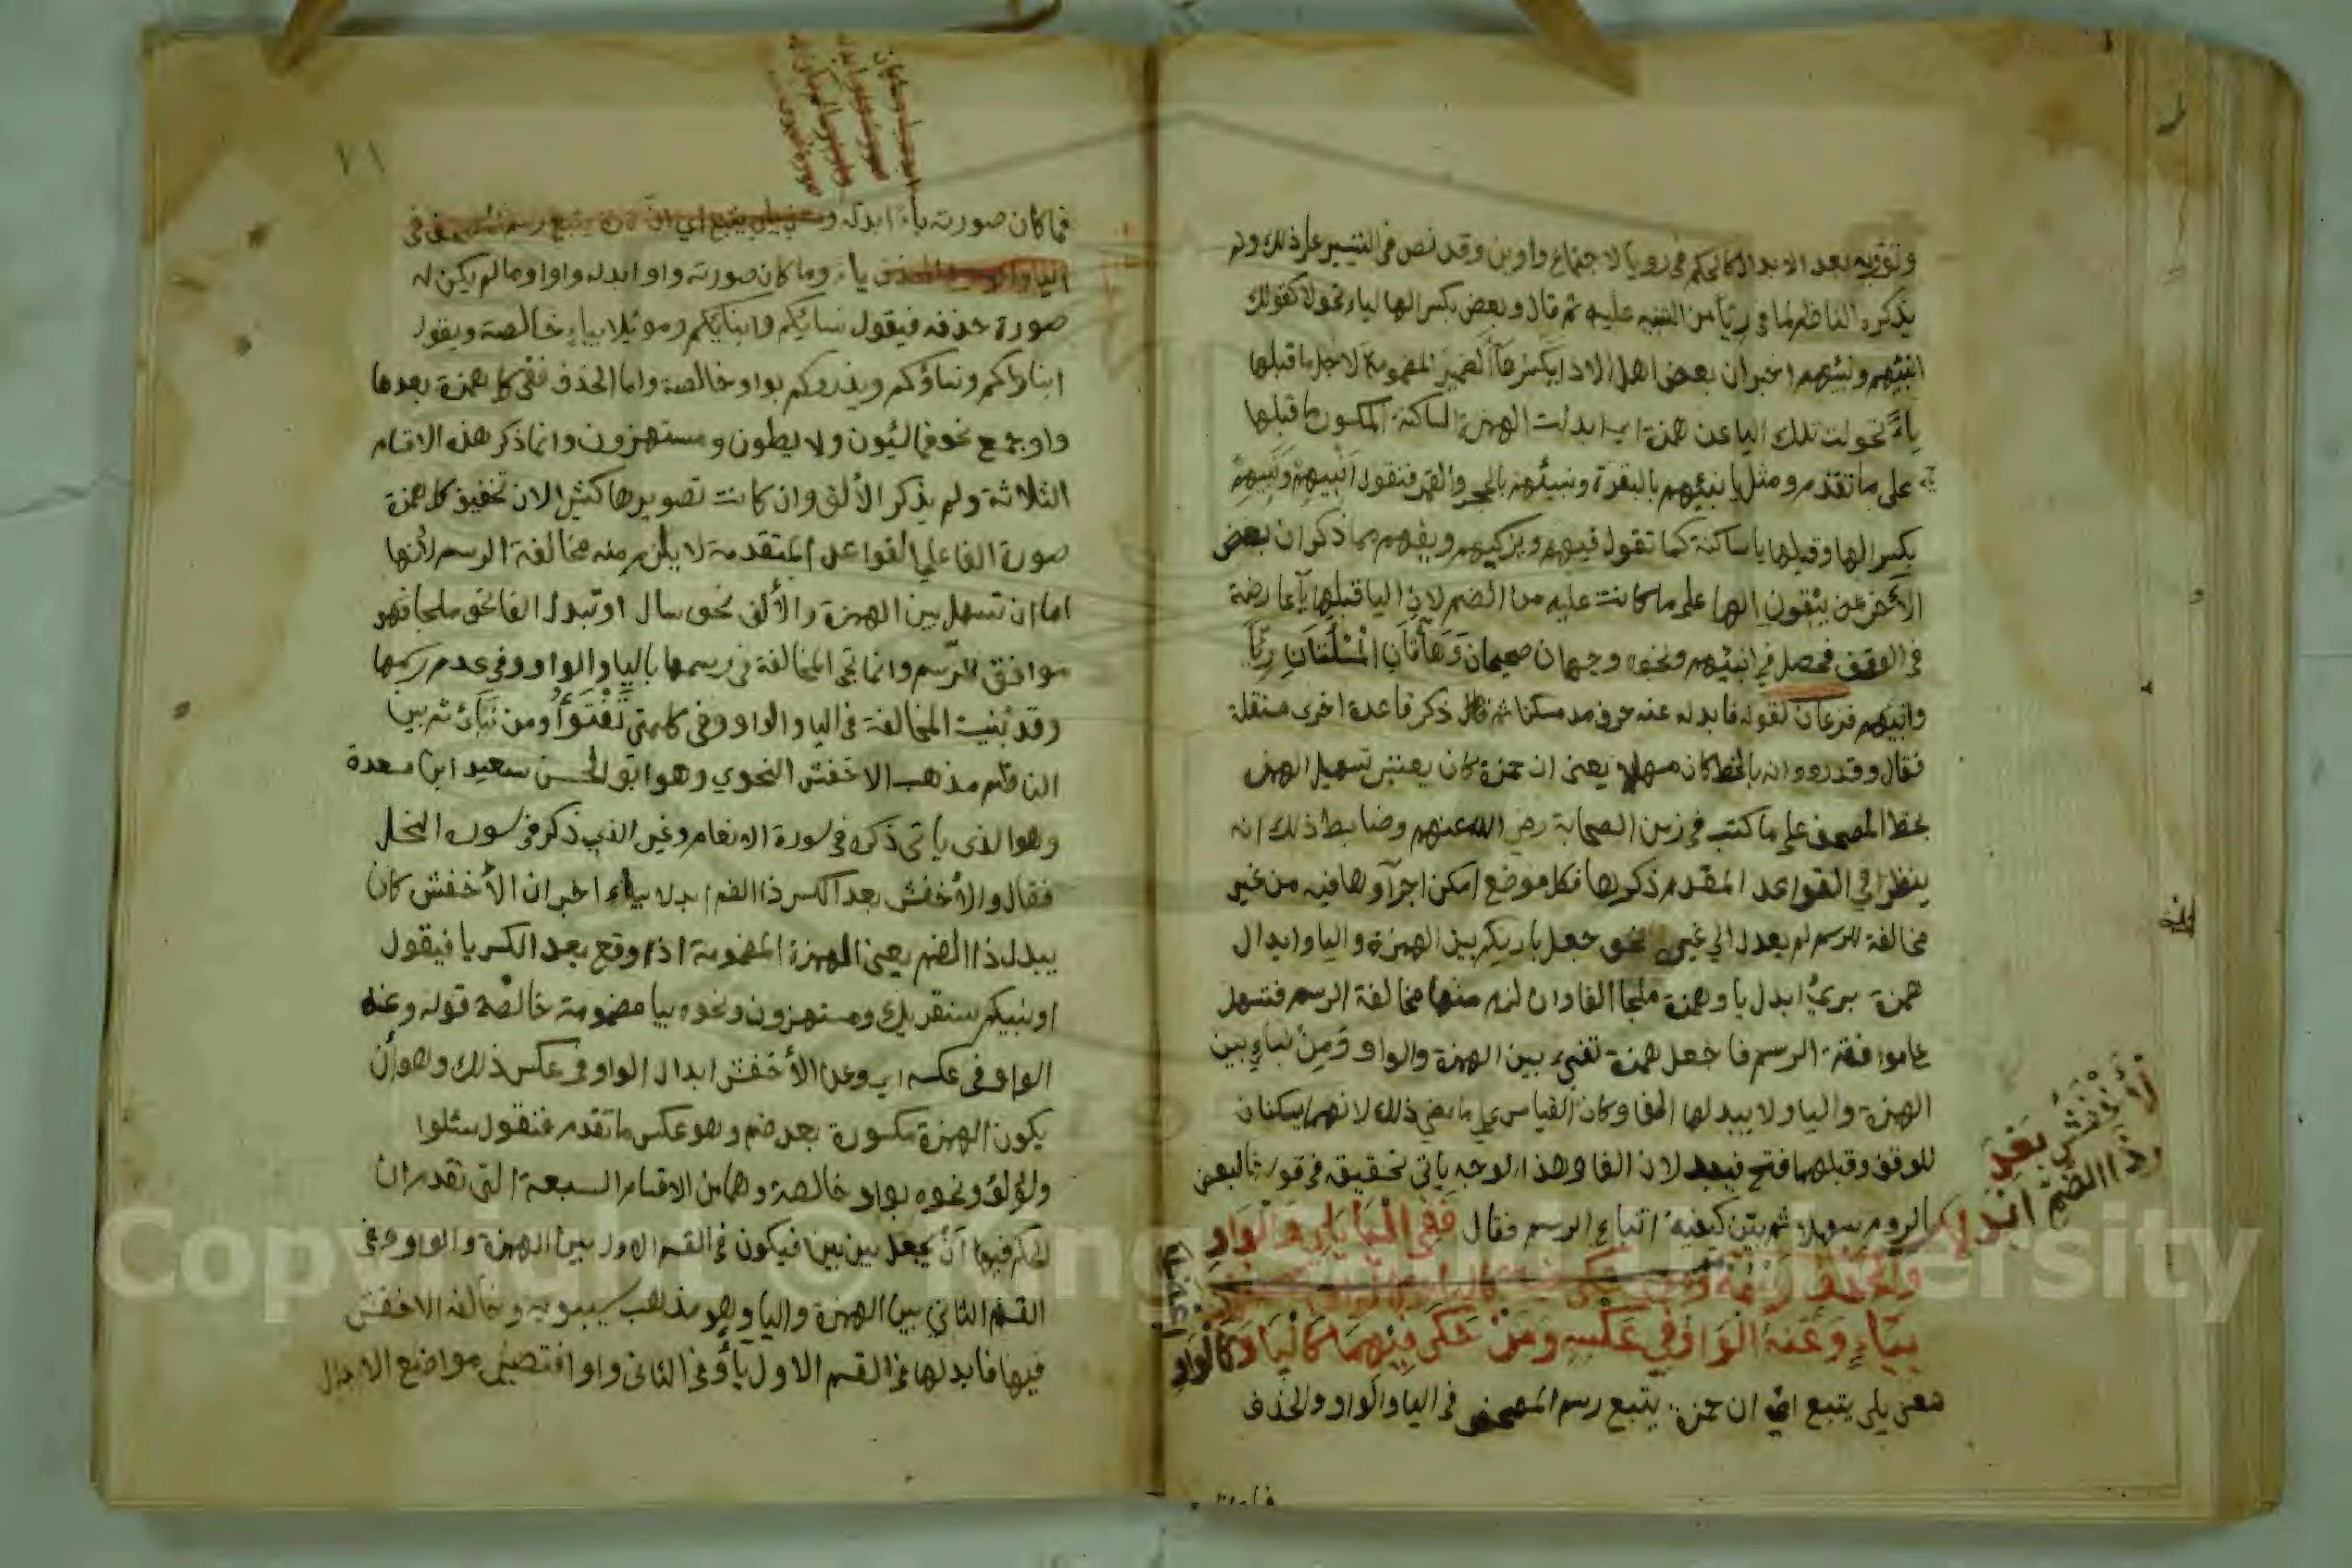 وتؤويه بعد الابدال كالحكم في رويا لاجتماع واوين وقد نص في التيسير على ذلك ولم
يذكره الناظم لما في رءيا من التنبيه عليه ثم قال وبعض بكسر الها لياء تحولا كقولك
انبئهم ونبئهم اخبر ان بعض اهل الادا يكسر هآ الضمير المضمومة لاجل ما قبلها
ياءً تحولت تلك اليا عن همزة اي ابدلت الهمزة الساكنة المكسور ما قبلها
على ما تقدم ومثل يا نبئهم بالبقرة ونبئهم بالحجر والقمر فتقول انبيهم ونبيهم
بكسر الها وقبلها يا ساكنة كما تقول فيهم ويزكيهم ويفهم مما ذكر ان بعض
الآخرين يبقون الها على ما كانت عليه من الضم لان اليا قبلها يآ عارضة
في الوقف فحصل في انبئهم ونحوه وجهان صحيحان وهاتان المسئلتان رئيا
وانبيهم فرعان لقوله فابدله عنه حرف مد مسكنا ذكر قاعدة اخرى مستقلة
فقال وقد رووا انه بالخط كان مسهلا يعنى ان حمزة كان يعتبر تسهيل الهمز
بخط المصحف على ما كتب في زمن الصحابة رضي الله عنهم وضابط ذلك انه
ينظر في القواعد المقدم ذكرها فكل موضع امكن اجرآوها فيه من غير
مخالفة للرسم لم يعدل الى غيره نحو جعل باريكم بين الهمزة واليا وابدال
همزة بريءُ ابدل يا وهمزة ملجا الفا وان لزم منها مخالفة الرسم فتسهل
على موافقة الرسم فاجعل همزة تفتؤ بين الهمزة والواو ومن نباءِ بين
الهمزة واليا ولا يبدلها الفا وكان القياس على ما مضى ذلك لانهما يسكنان
للوقف وقبلهما فتح فيبدلان الفا وهذا الوجه ياتي تحقيقه في قوله فالبعض
بالروم سهلا ثم بيّن كيفية اتباع الرسم فقال ففى اليا يلى والواو
والحذف رسمه
بياءٍ وعنه الواو في عكسه ومن حكى فيهما كاليا وكالواو
معنى يلى يتبع اي ان حمزة يتبع رسم المصحف في اليا والواو والحذف
الأخفش بعد
ذا الضم ابدلا
اعضلا
فما كان صورته ياءً ابدله
ياء وما كان صورته واو ابدله واوا وما لم يكن له
صورة حذفه فيقول نسايكم وابنايكم وموئلا بياءٍ خالصة ويقول
ابناوكم ونساؤكم ويذروكم بواو خالصة واما الحذف ففي كل همزة بعدها
واو جمع نحو فمالئون ولا يطون ومستهزون وانما ذكر هذه الاقسام
الثلاثة ولم يذكر الألف وان كانت تصويرها كثير الان تخفيف كل همزة
صورة الفا على القواعد المتقدمة لا يلزم منه مخالفة الرسم لأنها
اما ان تسهل بين الهمزة والألف نحو سال او تبدل الفا نحو ملجا فهو
موافق للرّسم وانما تجى المخالفة في رسمها باليا والواو وفي عدم رسمها
وقد بُنيت المخالفة في اليا والواو وفي كلمتي تَفْتَؤُا ومن نبائ ثم بين
الناظم مذهب الاخفش النحوي وهو ابو الحسن سعيد ابن مسعدة
وهو الذى ياتى ذكره في سورة الانعام وغير الذي ذكر في سورة النحل
فقال والأخفش بعد الكسر ذا الضم ابدلا بياء اخبر ان الأخفش كان
يبدل ذا الضم يعنى الهمزة المضمومة اذا وقع بعد الكسر يا فيقول
اونبيكم سنقريك ومستهزون ونحوه بيا مضمومة خالصة قوله وعنه
الواو في عكسه اي وعن الأخفش ابدال الواو في عكس ذلك وهو أن
يكون الهمزة مكسورة بعد ضم وهو عكس ما تقدم فتقول سئلوا
ولؤلؤ ونحوه بواو خالصة وهما من الاقسام السبعة التى تقدم ان
الحكم فيها أنْ يجعل بين بين فيكون في القسم الاول بين الهمزة والواو وفي
القسم الثاني بين الهمزة واليا وهو مذهب سيبويه وخالفه الاخفش
فيها فابدلها في القسم الاول يأ وفى الثانى واوا فتصير مواضع الابدال
Copyright © King Saud University